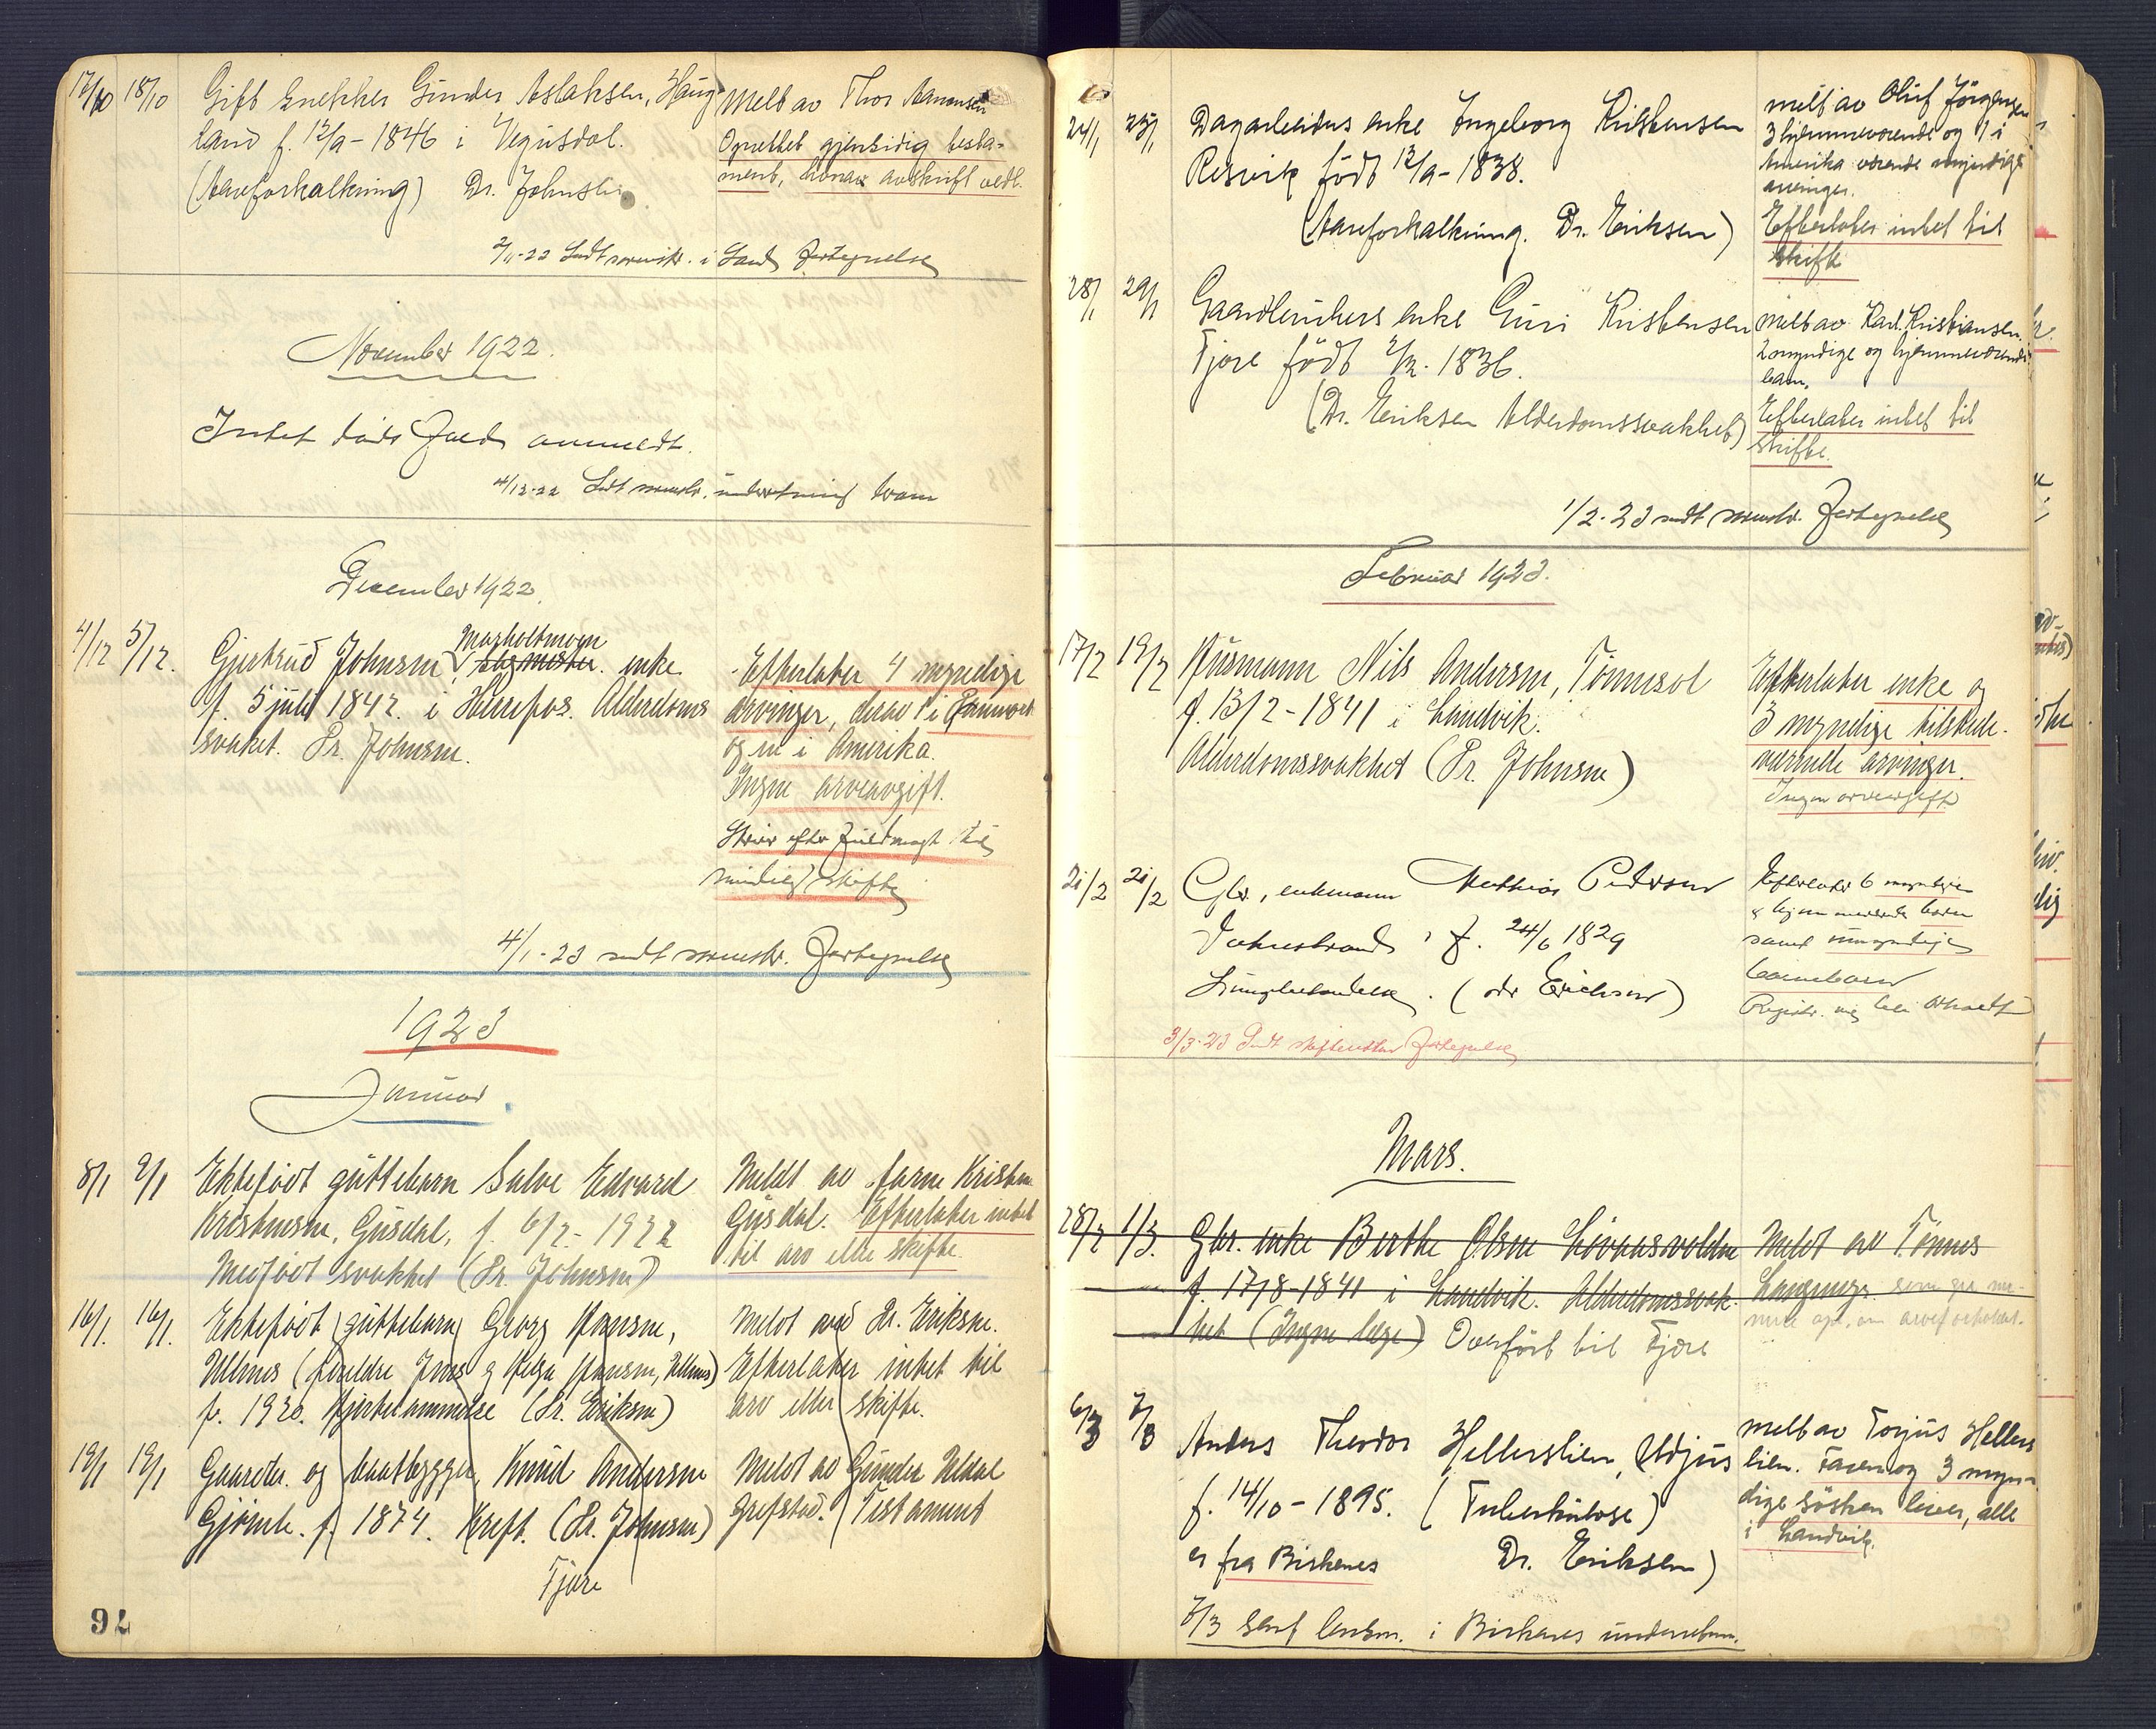 17/10 18/10 Gift snekker Gunder Aslaksen, Haug- melt av Thor Aanonsen
land f. 12/9-1846 i Vegusdal. Oprettet gjensidig testa-
(Aareforkalkning) Dr. Johnsen ment, hvorav avskrift vedl.
2/11-22 Sendt sorenskr. i Sand Fortegnelse
November 1922.
Intet døds fald anmeldt.
4/12-22 Sendt sorenskr. underretning herom
December 1922.
Morholtmoen
4/12 5/12. Gjertrud Johnsen, enke - Efterlater 4 myndige
f. 5 juli 1842. i Herefos. Alderdoms arvinger, derav 1 i
svaket. Dr. Johnsen. og en i Amerika.
Ingen arveavgift.
Skriv efter fuldmagt til
mindelig skifte
4/1-23 sendt sorenskr. Fortegnelse
1923
Januar
8/1 9/1 Ektefødt guttebarn Salve Edvard Meldt av faren Kristen
Kristensen, Gusdal, f. 6/2-1922 Gusdal. Efterlater intet
Medfødt svakhet (Dr. Johnsen) til arv eller skifte.
16/1. 16/1. Ektefødt guttebarn Georg Hansen, Meldt ved Dr. Eriksen.
(foreldre Jens og Helga Hansen, ) Efterlater intet til
f. 1920. Hjertelammelse (Dr. Eriksen) arv eller skifte.
19/1 19/1 Gaardbr. og baatbygger, Knud Andersen Meldt av Gunder
Gjømle. f. 1874. Kreft. (Dr. Johnsen) Grefstad. Testament
Fjære
92
24/1 25/1 Dagarbeiders enke Ingeborg Kristensen melt av Oluf Jörgensen
Resvik født 12/9-1838. 3 hjemmeværende og 1 i
Amerika værende myndige
arvinger.
(Aareforkalkning. Dr. Eriksen) Efterlater intet til
skifte
28/1 29/1 Gaardbrukers enke Guri Kristensen melt av Karl Kristiansen.
Fjore født 2/12-1836. 2 myndige og hjemmeværende
barn.
(Dr. Eriksen Alderdomssvakhet) Efterlater intet til
skifte.
1/2-23 sendt sorenskr. Fortegnelse
Februar 1923.
17/2 19/2 Husmann Nils Andersen, Tønnesøl Efterlater enke og
f. 13/2-1841 i Landvik. 3 myndige tilstede-
Alderdomssvakhet (Dr. Johnsen) værende arvinger.
Ingen arveavgift
21/2 21/2 Gbr., enkemann Mathias Pederson Efterlater 6 myndige
f. 24/6 1829 & hjemmeværende barn
samt umyndige
Lungebetendelse. (dr Erichsen) barnebarn
3/3-23 Sendt skifteretten Fortegnelse
Mars.
28/2 1/3. Gbr. enke Berthe Olsen Løvaasvolden Meldt av Tønnes
f. 17/8-1841 i Landvik. Alderdomssvak- som gir nær-
het (Ingen læge) Overført til Fjære mere opl. om arveforholdet.
6/3 7/3 Anders Theodor Hellerslien, Udjus melt av Torjus Hellers
lien. Faren og 3 myn-
f. 14/10-1895. (Tuberkulose) dige sösken lever, alle
i Landvik.
er fra Birkenes Dr. Eriksen)
7/3 sent lensm. i Birkenes underretn.